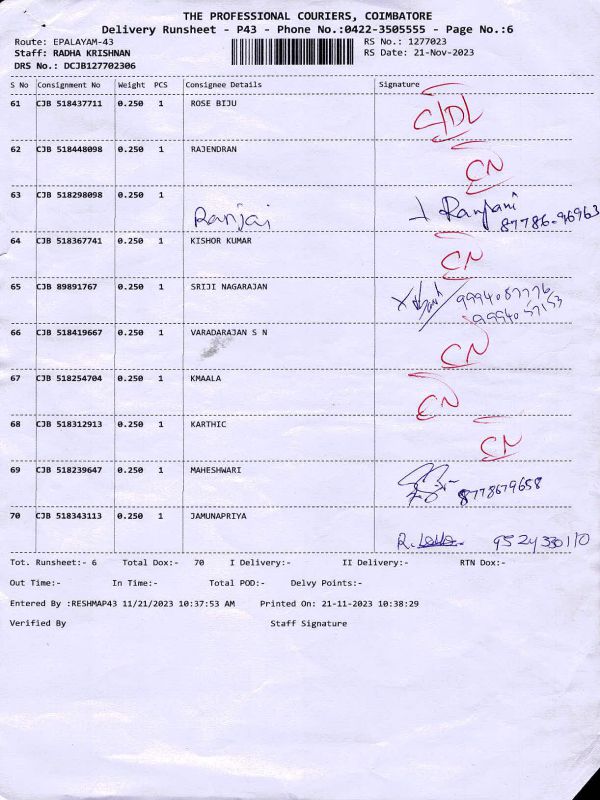 THE PROFESSIONAL COURIERS, COIMBATORE
Delivery Runsheet - P43 - Phone No.:0422-3505555 - Page No.:6
Route: EPALAYAM-43 RS No.: 1277023
Staff: RADHA KRISHNAN RS Date: 21-Nov-2023
DRS No.: DCJB127702306
S No Consignment No Weight PCS Consignee Details Signature
61 CJB 518437711 0.250 1 ROSE BIJU
62 CJB 518448098 0.250 1 RAJENDRAN CN
63 CJB 518298098 0.250 1 Ranjai Ranjani
87786-96963
64 CJB 518367741 0.250 1 KISHOR KUMAR CN
65 CJB 89891767 0.250 1 SRIJI NAGARAJAN 9994087776
9994057153
66 CJB 518419667 0.250 1 VARADARAJAN S N CN
67 CJB 518254704 0.250 1 KMAALA CN
68 CJB 518312913 0.250 1 KARTHIC CN
69 CJB 518239647 0.250 1 MAHESHWARI 8778679658
70 CJB 518343113 0.250 1 JAMUNAPRIYA
R. 9524330110
Tot. Runsheet:- 6 Total Dox:- 70 I Delivery:- II Delivery:- RTN Dox:-
Out Time:- In Time:- Total POD:- Delvy Points:-
Entered By :RESHMAP43 11/21/2023 10:37:53 AM Printed On: 21-11-2023 10:38:29
Verified By Staff Signature